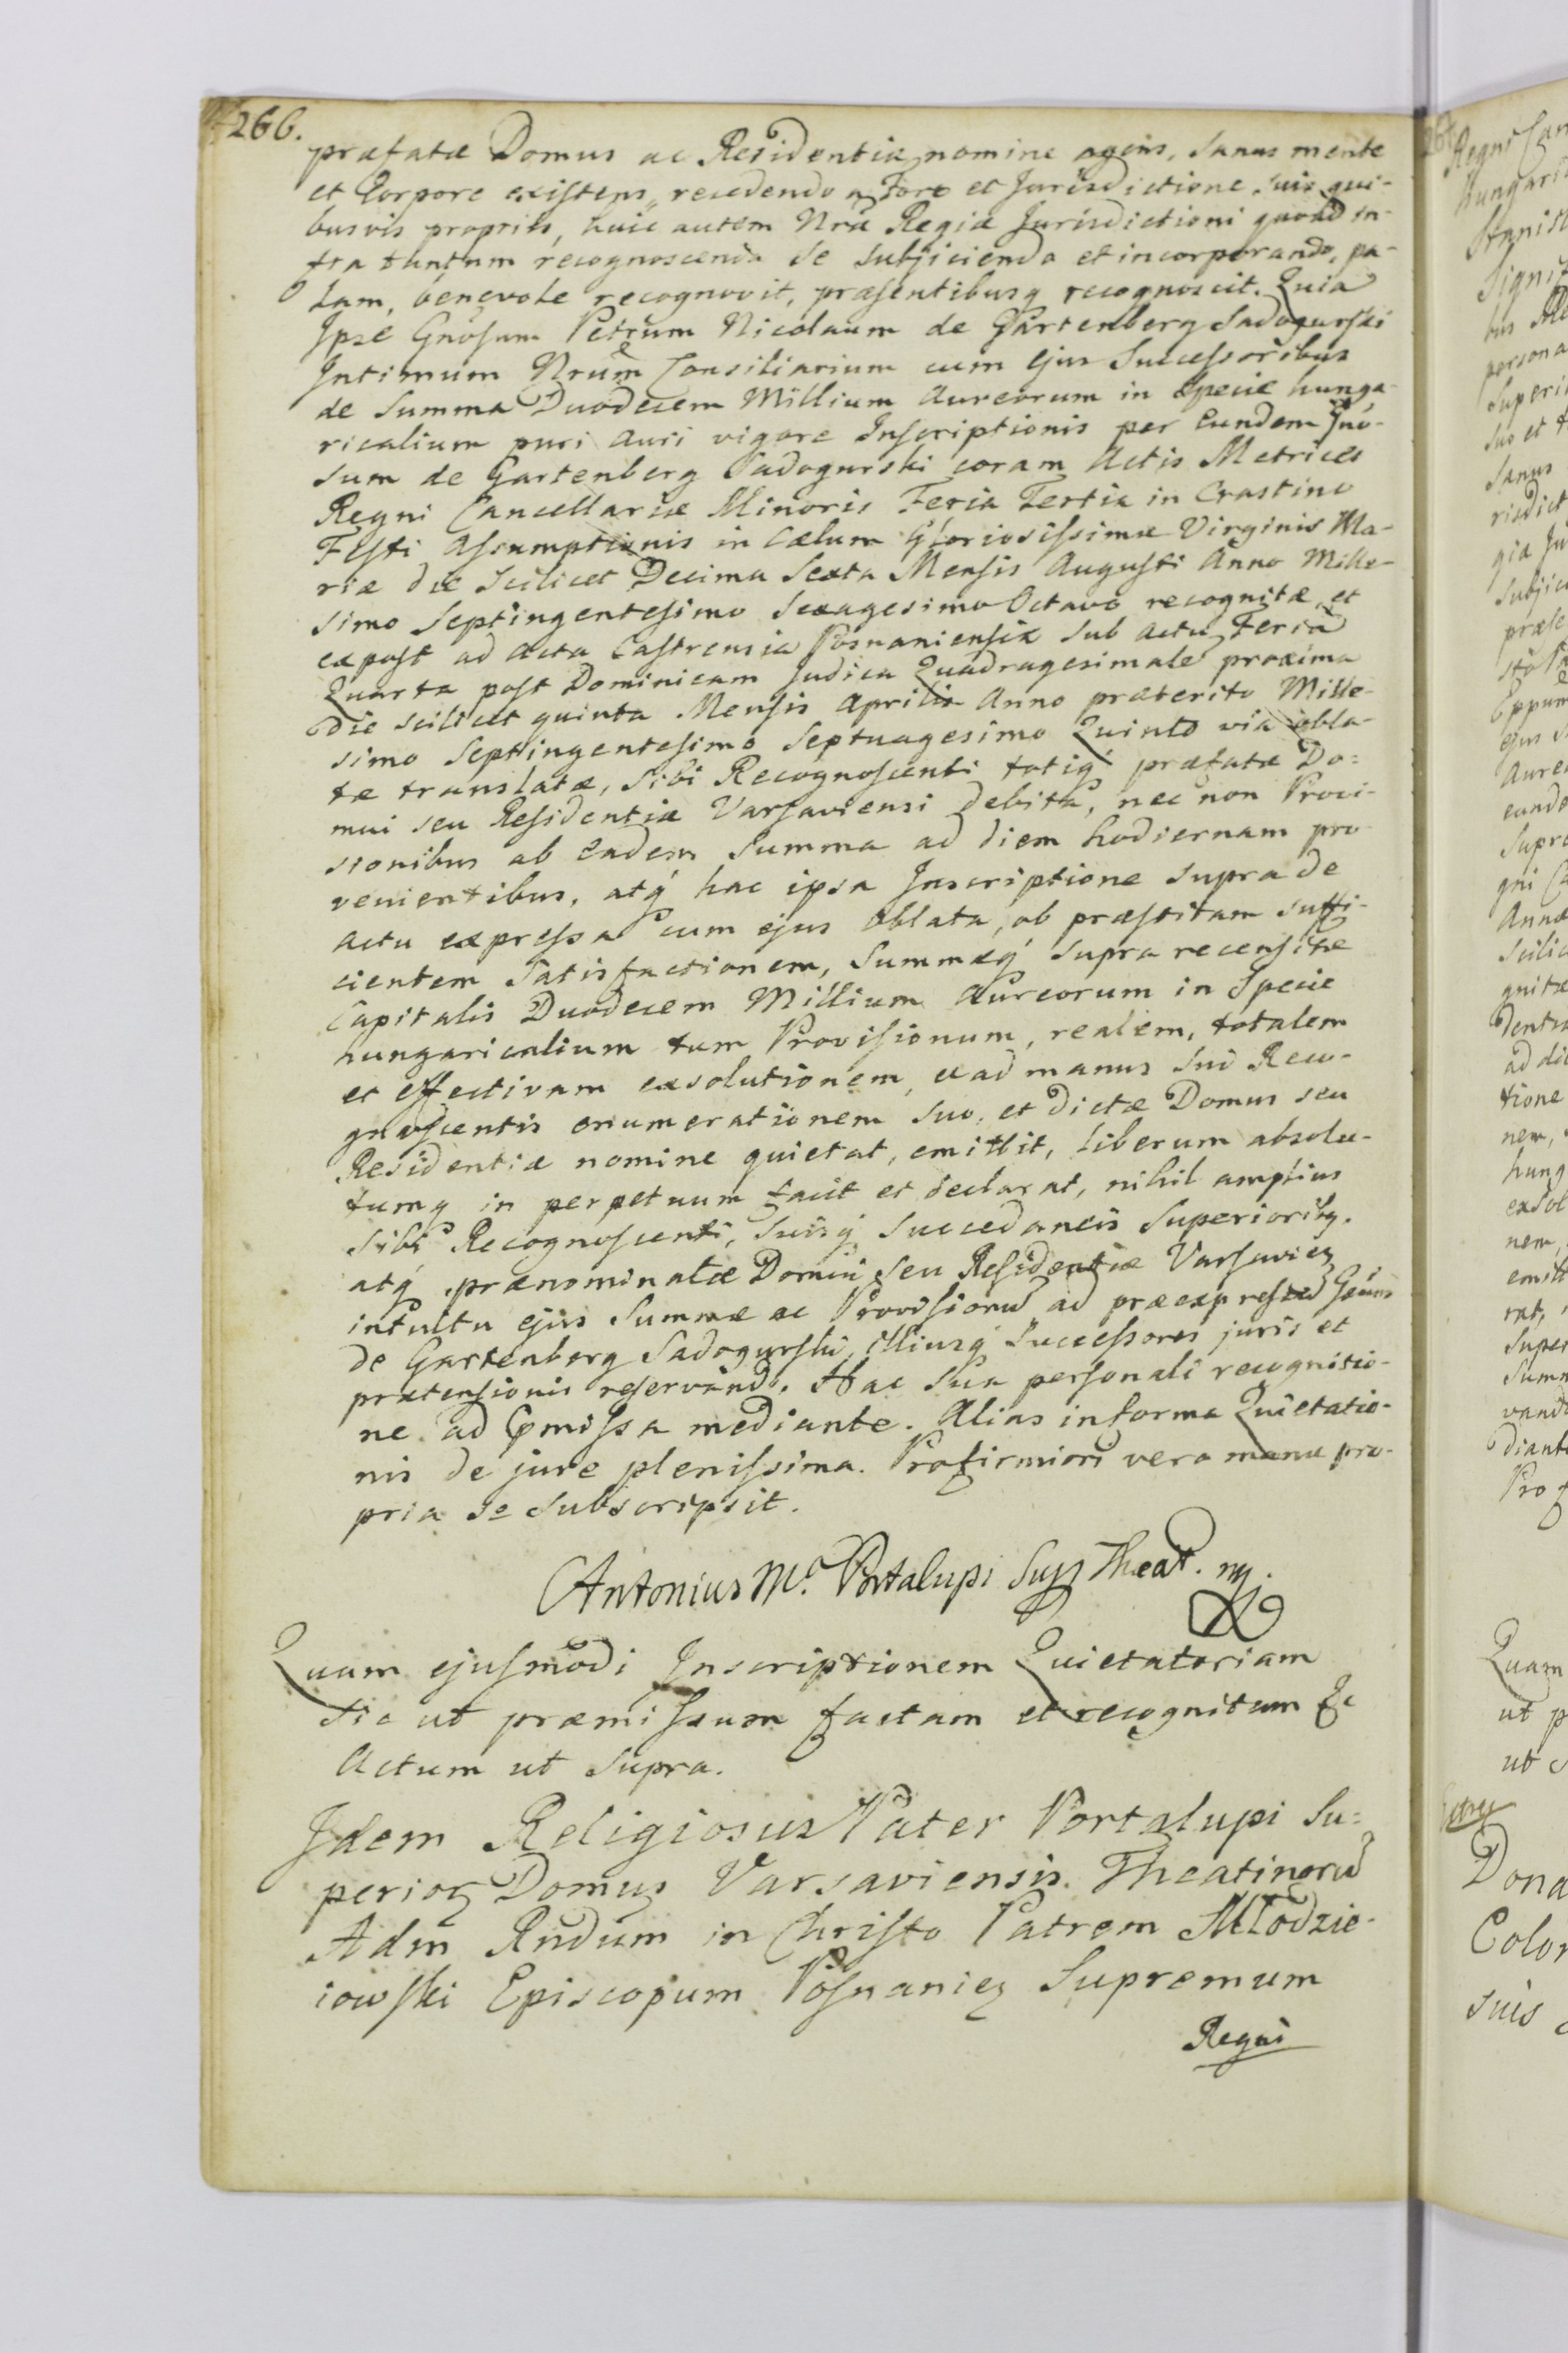 266.
præfatæ Domus ac Residentiæ nomine agens, sanus mente
et Corpore existens, recedendo a Foro et Jurisdictione suis qui-
busvis proprits, huic autem Nrã Regiæ Jurisdictioni quoad in-
fra tantum recognoscenda se subjiciendo et incorporando, pa-
lam, benevole recognovit, præsentibusq recognoscit. Quia
Ipse Gnõsum Petrum Nicolaum de Gartenberg Sadogurski
Intimum Nrum Consiliarium cum ejus Successoribus
de Summa Duodecem Millium Aureorum in specie hunga-
ricalium puri auri vigore Inscriptionis per Eundem Gnõ-
sum de Gartenberg Sadogurski coram Actis Metrices
Regni Cancellariæ Minoris Feria Tertia in Crastino
Festi Assumptionis in Cælum Gloriosissimæ Virginis Ma-
riæ die scilicet Decima Sexta Mensis Augusti Anno Mille-
simo Septingentesimo Sexagesimo Octavo recognitæ, et
ex post ad Acta Castrensia Posnaniensia sub actu Feria
Quarta post Dominicam Judica Quadragesimale proxima
die scilicet quinta Mensis Aprilis Anno præterito Mille-
simo Septingentesimo Septuagesimo Quinto via obla-
tæ translatæ, sibi Recognoscenti totiq́ præfatæ Do=
mui seu Residentiæ Varsaviensi debita, nec non Provi-
sionibus ab eadem Summa ad diem hodiernam pro-
venientibus, atq́ hac ipsa Inscriptione supra de
actu expressa cum ejus Oblata, ob præstitam suffi-
cientem satisfactionem, Summæq́ supra recensitæ
Capitalis Duodecem Millium Aureorum in Specie
hungaricalium tum Provisionum, realem, totalem
et effectivam exsolutionem, et ad manus sui Reco-
gnoscentis enumerationem suo, et dictæ Domus seu
Residentiæ nomine quietat, emittit, liberum absolu-
tumq in perpetuum facit et declarat, nihil amplius
sibi Recognoscenti, suisq́ succedaneis Superiorib9.
atq́ prænominatæ Domui seu Residentiæ Varsavien
intuitu ejus Summæ ac Provisionũ ad præexpressed Gnõsus
de Gartenberg Sadogurski, illiusq́ Successores juris et
prætensionis reservando. Hac sua personali recognitio-
ne ad pmissa mediante. Alias in forma Quietatio-
nis de jure plenissima. Pro firmiori vero manu pro-
pria se subscripsit.
Antonius Mᵃ. Portalupi Sup Theat. mp.
Quam ejusmodi Inscriptionem Quietatoriam
sic ut præmissum factam et recognitam &c
Actum ut supra.
Idem Religiosus Pater Portalupi Su=
perior Domus Varsaviensis. Theatinorũ
Adm Rndum in Christo Patrem Młodzie-
iowski Episcopum Posnanien Supremum
Regni